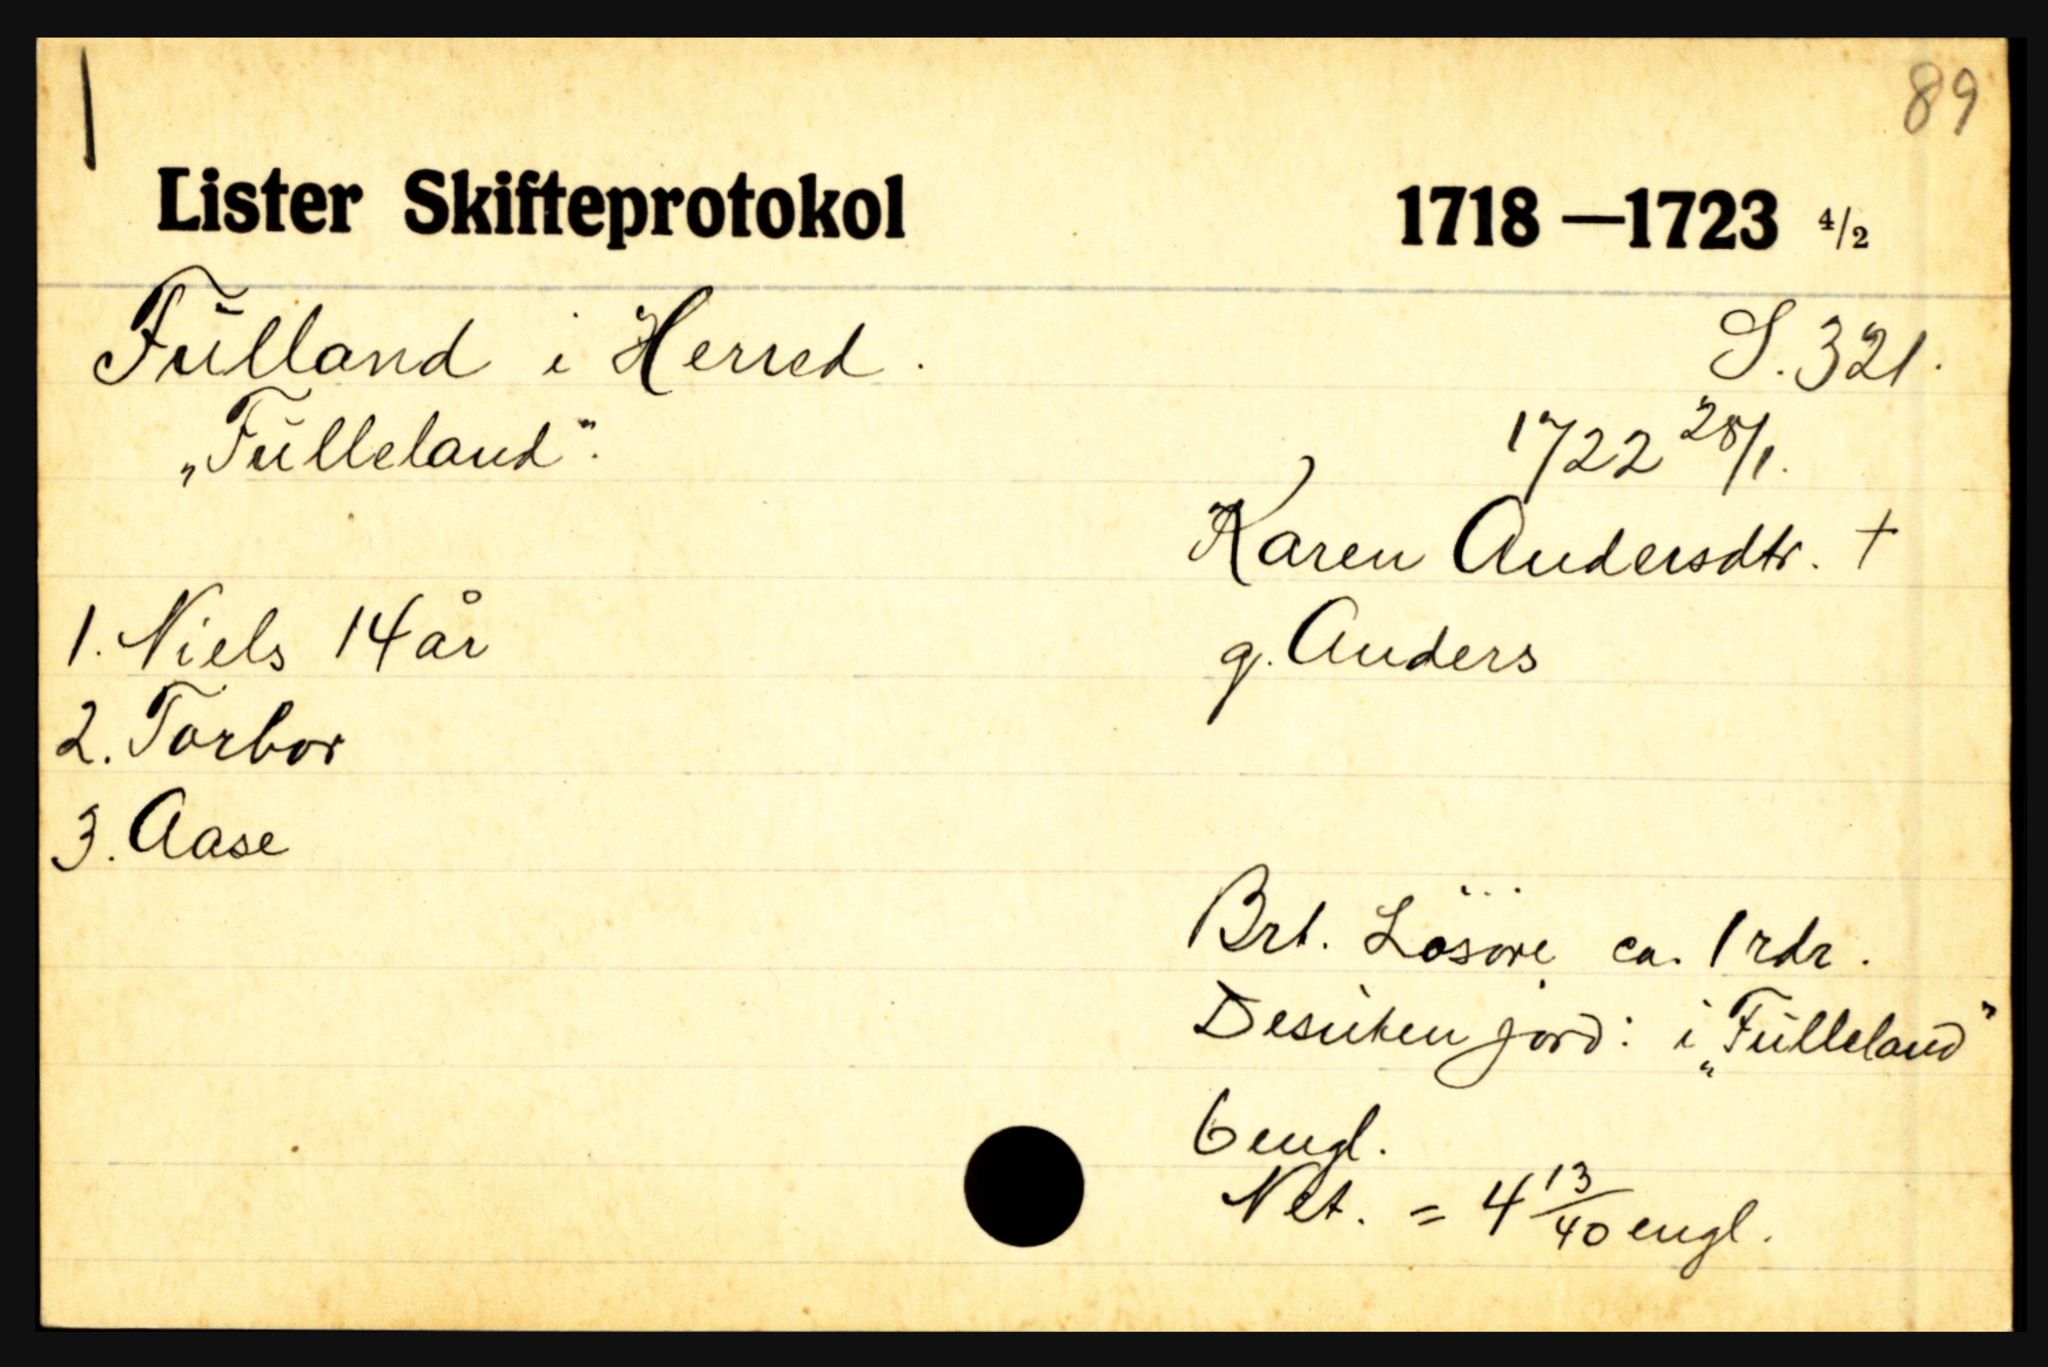 89
Lister Skifteprotokol 1718 — 1723 4/2
Fülland i Herred. S. 321.
„Fülleland". 1722 28/1.
Karen Andersdtr. +
1. Niels 14 år g. Anders
2. Torbor
3. Aase
Brt. Lösöre ca. 1 rdr.
Desuten jord: i „Fülleland"
6 engl.
Net. = 4 13/40 engl.